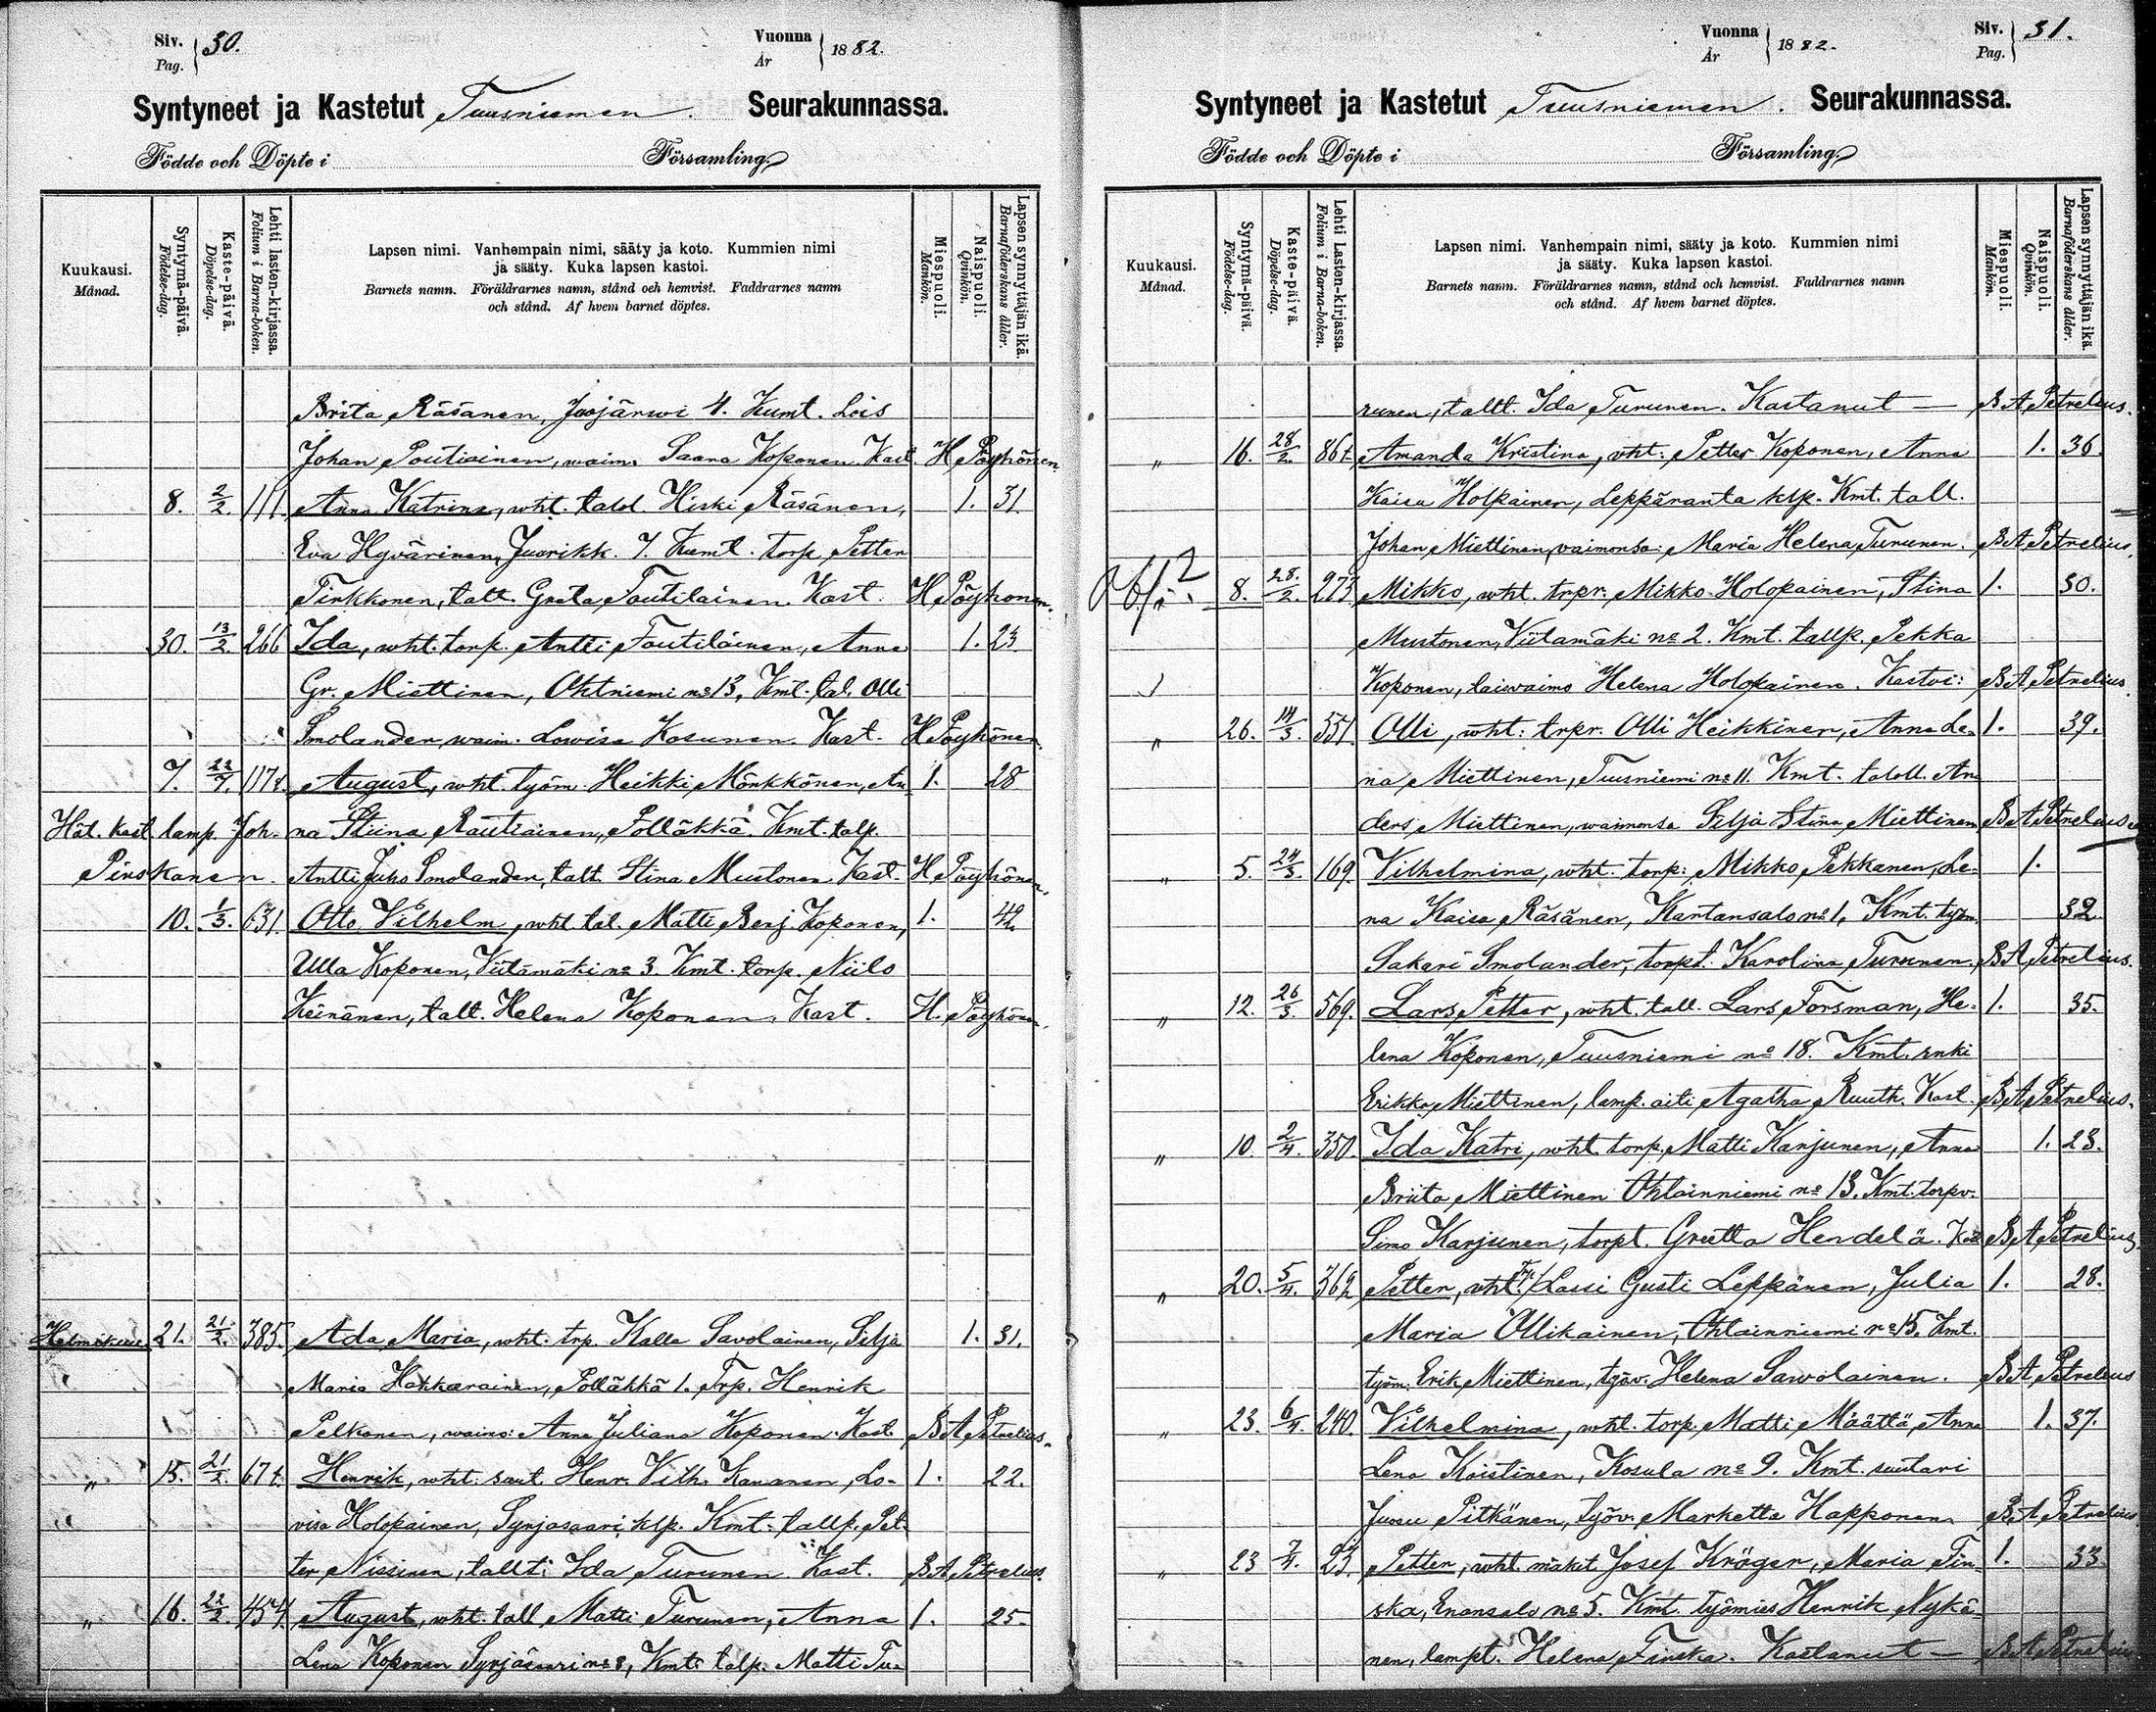 Siv. Pag. 30.
Vuonna År 1882.
Syntyneet ja Kastetut Tuusniemen Seurakunnassa.
Födde och Döpte i Församling
Kuukausi. Månad.
Syntymä-päivä. Födelse-dag.
Kaste-päivä. Döpelse-dag.
Lehti lasten-kirjassa. Folium i Barna-boken.
Lapsen nimi. Vanhempain nimi, sääty ja koto. Kummien nimi
ja sääty. Kuka lapsen kastoi.
Barnets namn. Föräldrarnes namn, stånd och hemvist. Faddrarnes namn
och stånd. Af hvem barnet döptes.
Miespuoli. Mankön.
Naispuoli. Qvinkön.
Lapsen synnyttäjän ikä. Barnaföderskans ålder.
Brita Räsänen, Juojärwi 4. Kumt. Lois
Johan Poutiainen, waim. Saara Koponen Kast. H Pöyhönen
8. 2/2. 111. Anna Katrina, wht. talol. Hiski Räsänen, 1. 31.
Eva Hyvärinen, Juurikk. 7. Kumt. torp. Petter
Tirkkonen, talt. Greta Tautilainen Kast. H Pöyhönen.
30. 13/2. 266 Ida, wht. torp. Antti Toutiläinen, Anna 1. 23
Gr. Miettinen, Ohtniemi no 13, Kmt. tal. Olli
Smolander waim. Lowisa Kosunen. Kast. H Pöyhönen.
7. 22/7. 117t. August, wht. työm. Heikki Mönkkönen, An 1. 28
Hät. kast. lamp. Joh. na Stiina Rautiainen, Polläkkä. Kmt. talp.
Pirskanen. Antti Juho Smolander, talt. Stina Mustonen Kast. H Pöyhönen.
10. 1/3. 631. Otto Vilhelm, wht. tal. Matti Benj. Koponen, 1. 42.
Ulla Koponen, Viitämäki no 3. Kmt. torp. Niilo
Keinänen, talt. Helena Koponen. Kast. H. Pöyhönen.
Helmikuu 21. 21/2. 385. Ada Maria, wht. trp. Kalle Savolainen, Silja 1. 31.
Maria Hakkarainen, Polläkkä 1. Trp. Henrik
Pelkonen, waimo: Anna Juliana Koponen. Kast. B A Petrelius.
" 15. 21/2. 67t. Henrik, wht. saut. Henr. Vilh. Kananen, Lo- 1. 22.
visa Holopainen, Syrjasaari, klp. Kmt. tallp. Pet-
ter Nissinen, tallt: Ida Turunen. Kast. B A Petrelius.
" 16. 22/2. 454. August, wht. tall Matti Turunen, Anna 1. 25.
Lena Koponen Syrjäsaari no 8, Kmt: talp. Matti Tu-
Vuonna År 1882.
Siv. Pag. 31.
Syntyneet ja Kastetut Tuusniemen. Seurakunnassa.
Födde och Döpte i Församling
Kuukausi. Månad.
Syntymä-päivä. Födelse-dag.
Kaste-päivä. Döpelse-dag.
Lehti Lasten-kirjassa. Folium i Barna-boken.
Lapsen nimi. Vanhempain nimi, sääty ja koto. Kummien nimi
ja sääty. Kuka lapsen kastoi.
Barnets namn. Föräldrarnes namn, stånd och hemvist. Faddrarnes namn
och stånd. Af hvem barnet döptes.
Miespuoli. Mankön.
Naispuoli. Qvinkön.
Lapsen synnyttäjän ikä. Barnaföderskans ålder.
runen, tallt. Ida Turunen. Kastanut — B A Petrelius.
" 16. 28/2. 86t. Amanda Kristina, vht: Petter Koponen, Anna 1. 36.
Kaisa Holpainen, Leppäranta klp. Kmt. tall.
Johan Miettinen, vaimonsa: Maria Helena Turunen. B A Petrelius.
8. 28./2. 273 Mikko, wht. trpr. Mikko Holopainen, Stina 1. 30.
Mustonen, Viitamäki no 2. Kmt. tallp. Pekka
Koponen, loiswaimo Helena Holokainen. Kastoi: B A Petrelius.
" 26. 14/3. 351. Olli, wht: trpr. Olli Heikkinen, Anna Le- 1. 39.
na Miettinen, Tuusniemi no 11. Kmt. taloll. An
ders Miettinen, waimonsa Silja Stina Miettinen B A Petrelius
" 5. 24/3. 169. Vilhelmina, wht. torp: Mikko Pekkanen, Le- 1.
na Kaisa Räsänen, Kartansalo no 1, Kmt. työm. 32.
Sakari Smolander, torpt. Karolina Turunen. B A Petrelius.
" 12. 26/3. 569. Lars Petter, wht. tall. Lars Forsman, He- 1. 35.
lena Koponen, Tuusniemi no 18. Kmt. renki
Erikko Miettinen, lamp. aiti Agatha Ruuth. Kast. B A Petrelius.
" 10. 2/4. 350. Ida Katri, wht. torp. Matti Karjunen, Anna 1. 23.
Briita Miettinen Ohtainniemi no 13. Kmt. torpv.
Simo Karjunen, torpt. Greetta Hendelä. Kast B A Petrelius.
" 20. 5/4. 362 Petter, wht. Trp. Lassi Gusti Leppänen, Julia 1. 28.
Maria Ollikainen, Ohtainniemi no 15, Kmt.
työm. Erik Miettinen, työv. Helena Savolainen. B A Petrelius
" 23. 6/4. 240. Vilhelmina, wht. torp. Matti Määttä, Anna 1. 37.
Lena Koistinen, Kosula no 9. Kmt. suutari
Juvu Pitkänen, työv. Marketta Happonen B. A Petrelius
" 23 7/4. 23. Petter, wht. mäkit Josef Kröger, Maria Fin- 1. 33
ska, Enonsalo no 5. Kmt. työmies Henrik Nykä-
nen, lampt. Helena Finska. Kastanut — B A Petrelius